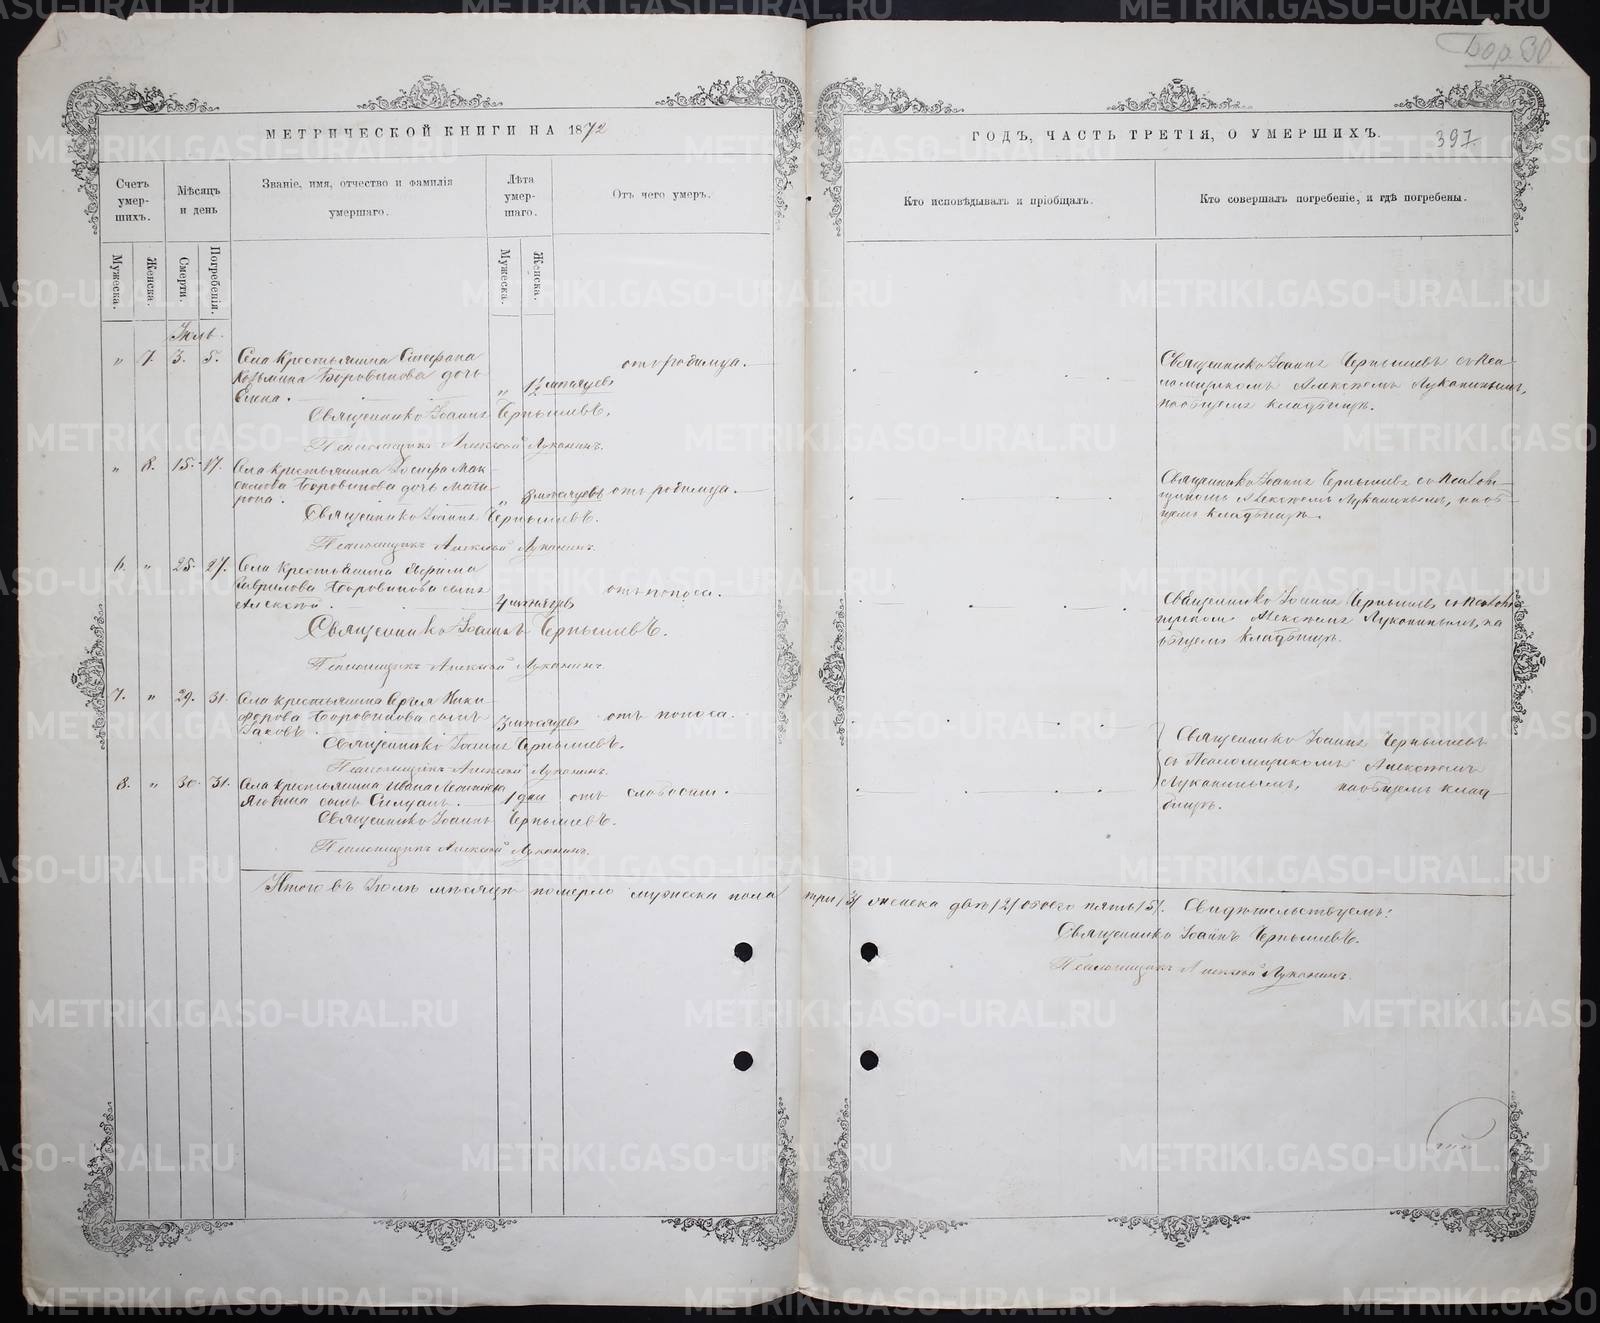 Бор. 30
МЕТРИЧЕСКОЙ КНИГИ НА 1872
ГОДЪ, ЧАСТЬ ТРЕТІЯ, О УМЕРШИХЪ.
397.
Счетъ умер-шихъ.
Мѣсяцъ и день
Званіе, имя, отчество и фамилія умершаго.
Лѣта умер-шаго.
Отъ чего умеръ.
Кто исповѣдывалъ и пріобщалъ.
Кто совершалъ погребеніе, и гдѣ погребены.
Мужеска.
Женска.
Смерти.
Погребенія.
Мужеска.
Женска.
Іюль.
„ 7. 3. 5. Села Крестьянина Стефана
Козьмина Боровикова дочь
Елена. „ 1½ мѣсяцевъ отъ родимца.
Священникъ Іоаннъ Чернышевъ съ Пса-
ломщикомъ Алексѣемъ Луканинымъ,
на общемъ кладбищѣ.
Священникъ Іоаннъ Чернышевъ.
Псаломщикъ Алексѣй Луканинъ.
„ 8. 15. 17. Села Крестьянина Іосифа Мак-
симова Боровикова дочь Мат-
рона. „ 8 мѣсяцевъ отъ родимца.
Священникъ Іоаннъ Чернышевъ съ Псалом-
щикомъ Алексѣемъ Луканинымъ, на об-
щемъ кладбищѣ.
Священникъ Іоаннъ Чернышевъ.
Псаломщикъ Алексѣй Луканинъ.
6. „ 25. 27. Села Крестьянина Ефима
Гаврилова Боровикова сынъ
Алексѣй. 4 мѣсяцевъ отъ поноса.
Священникъ Іоаннъ Чернышевъ съ Псалом-
щикомъ Алексѣемъ Луканинымъ, на
общемъ кладбищѣ.
Священникъ Іоаннъ Чернышевъ.
Псаломщикъ Алексѣй Луканинъ.
7. „ 29. 31. Села крестьянина Сергѣя Ники-
форова Боровикова сынъ
Іаковъ. 3 мѣсяцевъ отъ поноса.
Священникъ Іоаннъ Чернышевъ
съ Псаломщикомъ Алексѣемъ
Луканинымъ, на общемъ клад-
бищѣ.
Священникъ Іоаннъ Чернышевъ.
Псаломщикъ Алексѣй Луканинъ.
8. „ 30. 31. Села крестьянина Ивана
сынъ Силуанъ. 1 дня отъ слабости.
Священникъ Іоаннъ Чернышевъ.
Псаломщикъ Алексѣй Луканинъ.
Итого въ Іюлѣ мѣсяцѣ померло мужеска пола три /3/ женска двѣ /2/ обоего пять /5/. Свидѣтельствуемъ:
Священникъ Іоаннъ Чернышевъ.
Псаломщикъ Алексѣй Луканинъ.
METRIKI.GASO-URAL.RU